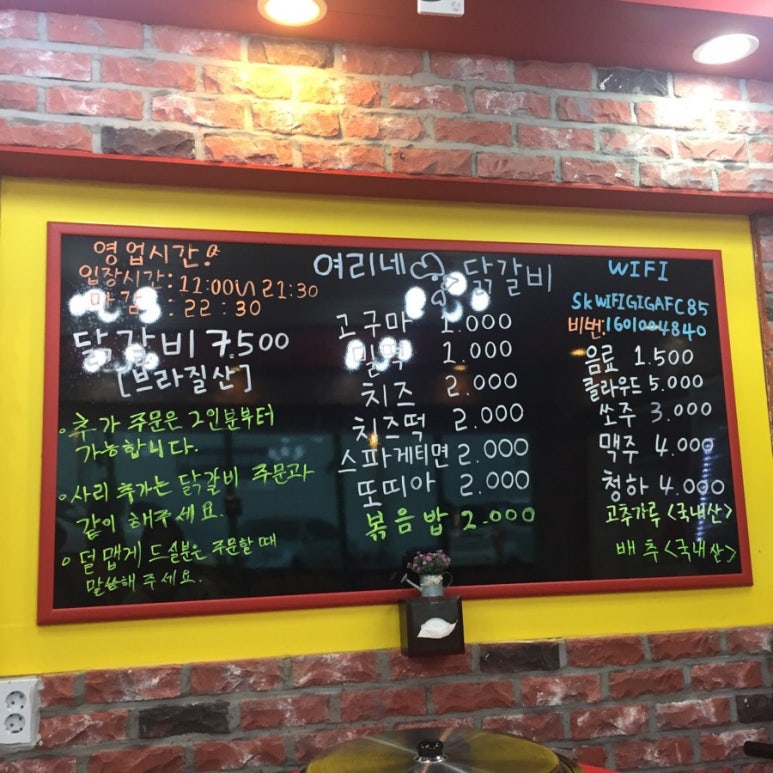 영업시간!
입장시간: 11:00 in 21:30
마감 : 22:30
닭갈비 7.500
[브라질산]
◦추가 주문은 2인분부터
가능합니다.
◦사리 추가는 닭갈비 주문과
같이 해주세요.
◦덜 맵게 드실분은 주문할때
말씀해 주세요.
여리네 닭갈비
고구마 1.000
밀떡 1.000
치즈 2.000
치즈떡 2.000
스파게티면 2.000
또띠아 2.000
볶음밥 2.000
WIFI
SKWIFIGIGAFC85
비번:1601004840
음료 1.500
클라우드 5.000
쏘주 3.000
맥주 4.000
청하 4.000
고추가루 <국내산>
배추 <국내산>